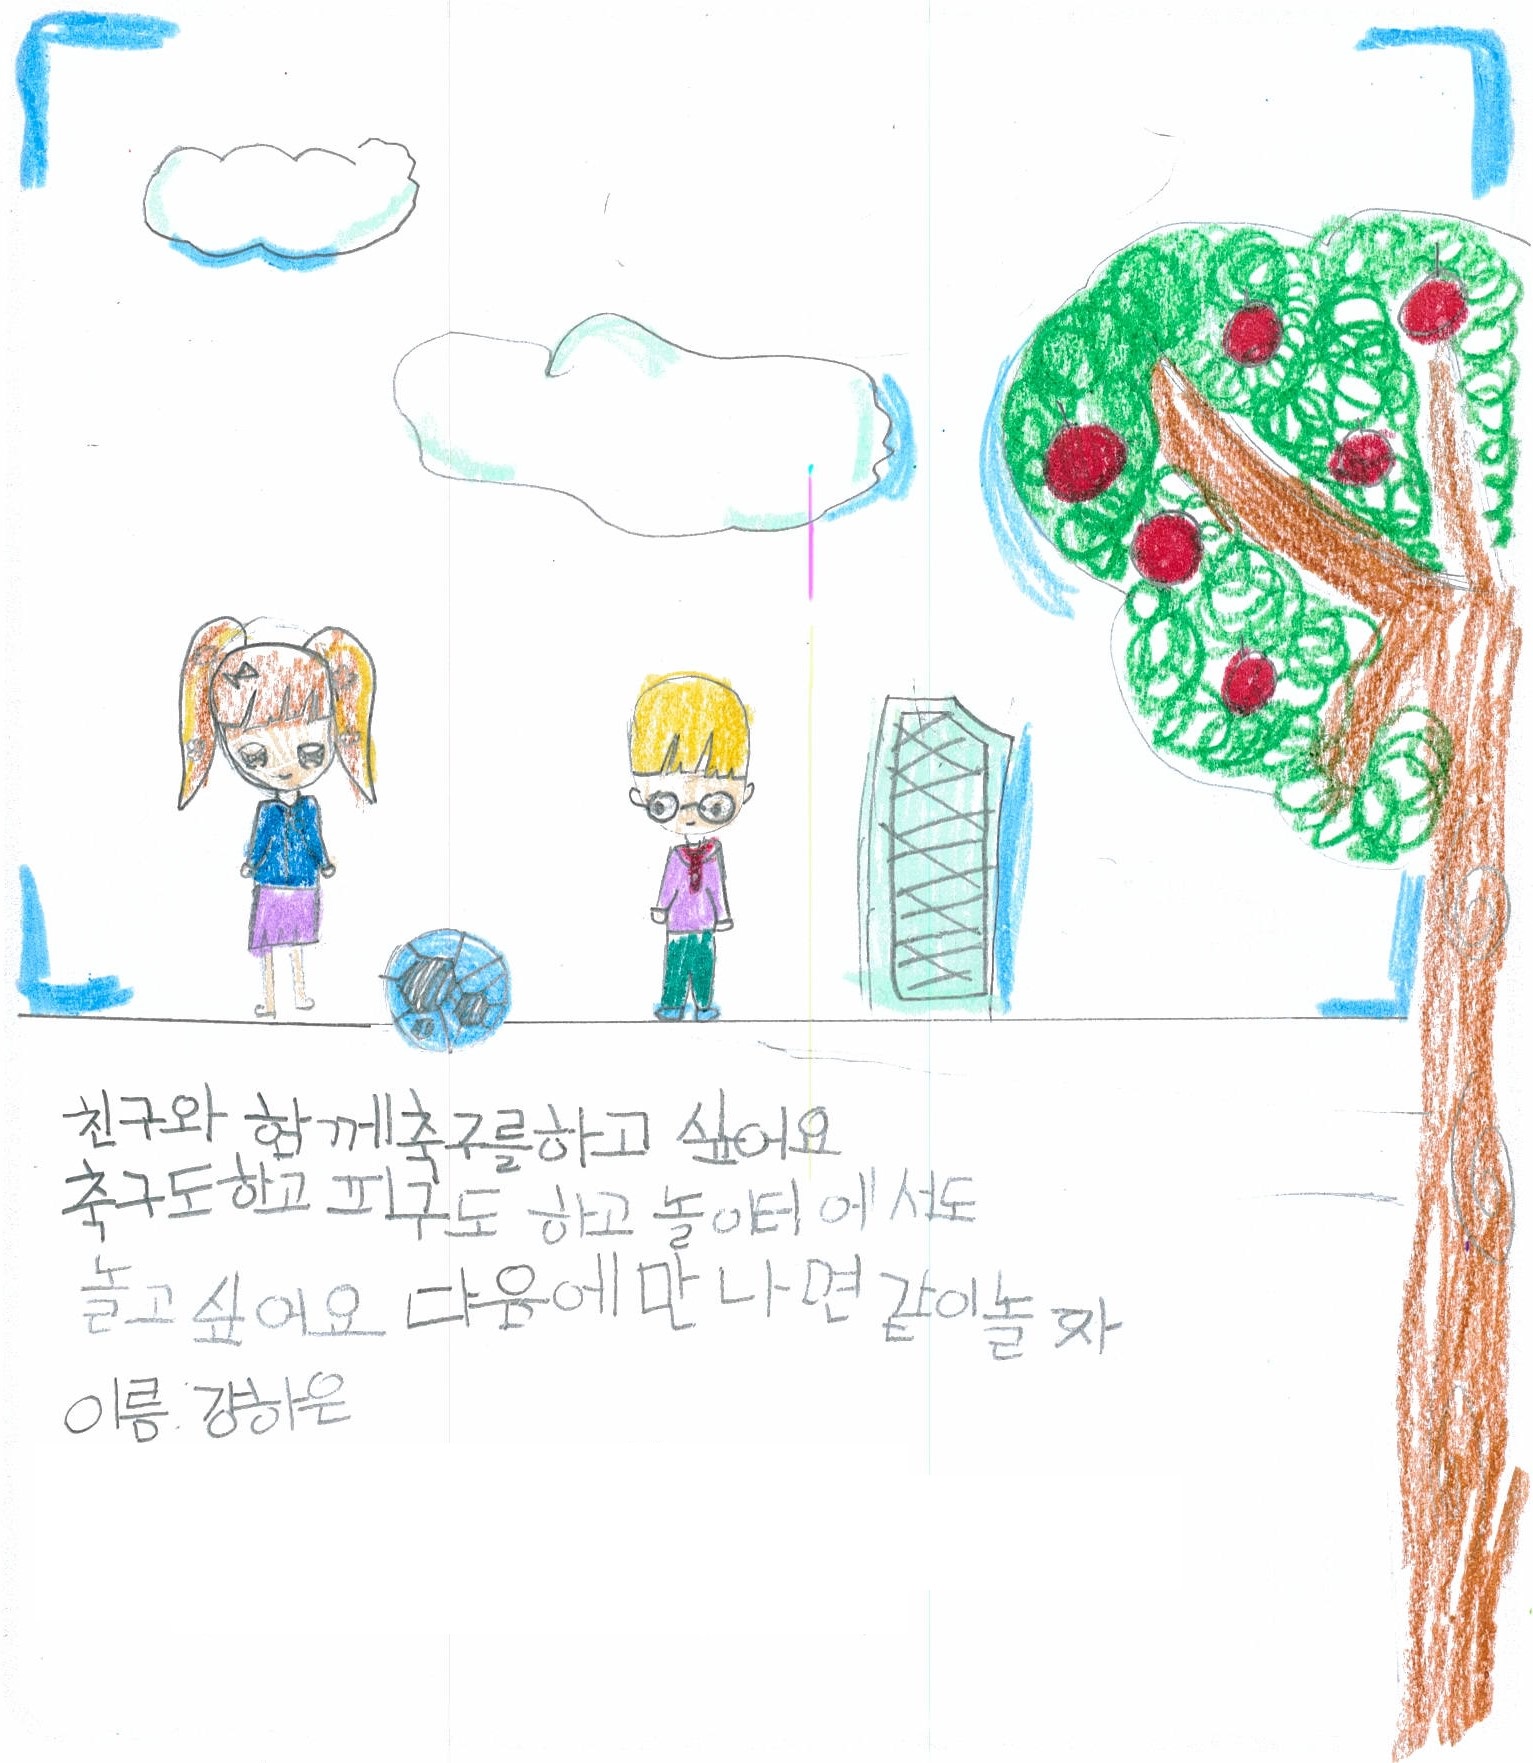 친구와 함께축구를하고 싶어요
축구도하고 피구도 하고 놀이터에서도
놀고싶어요 다음에만나면 같이놀자
이름: 강하은